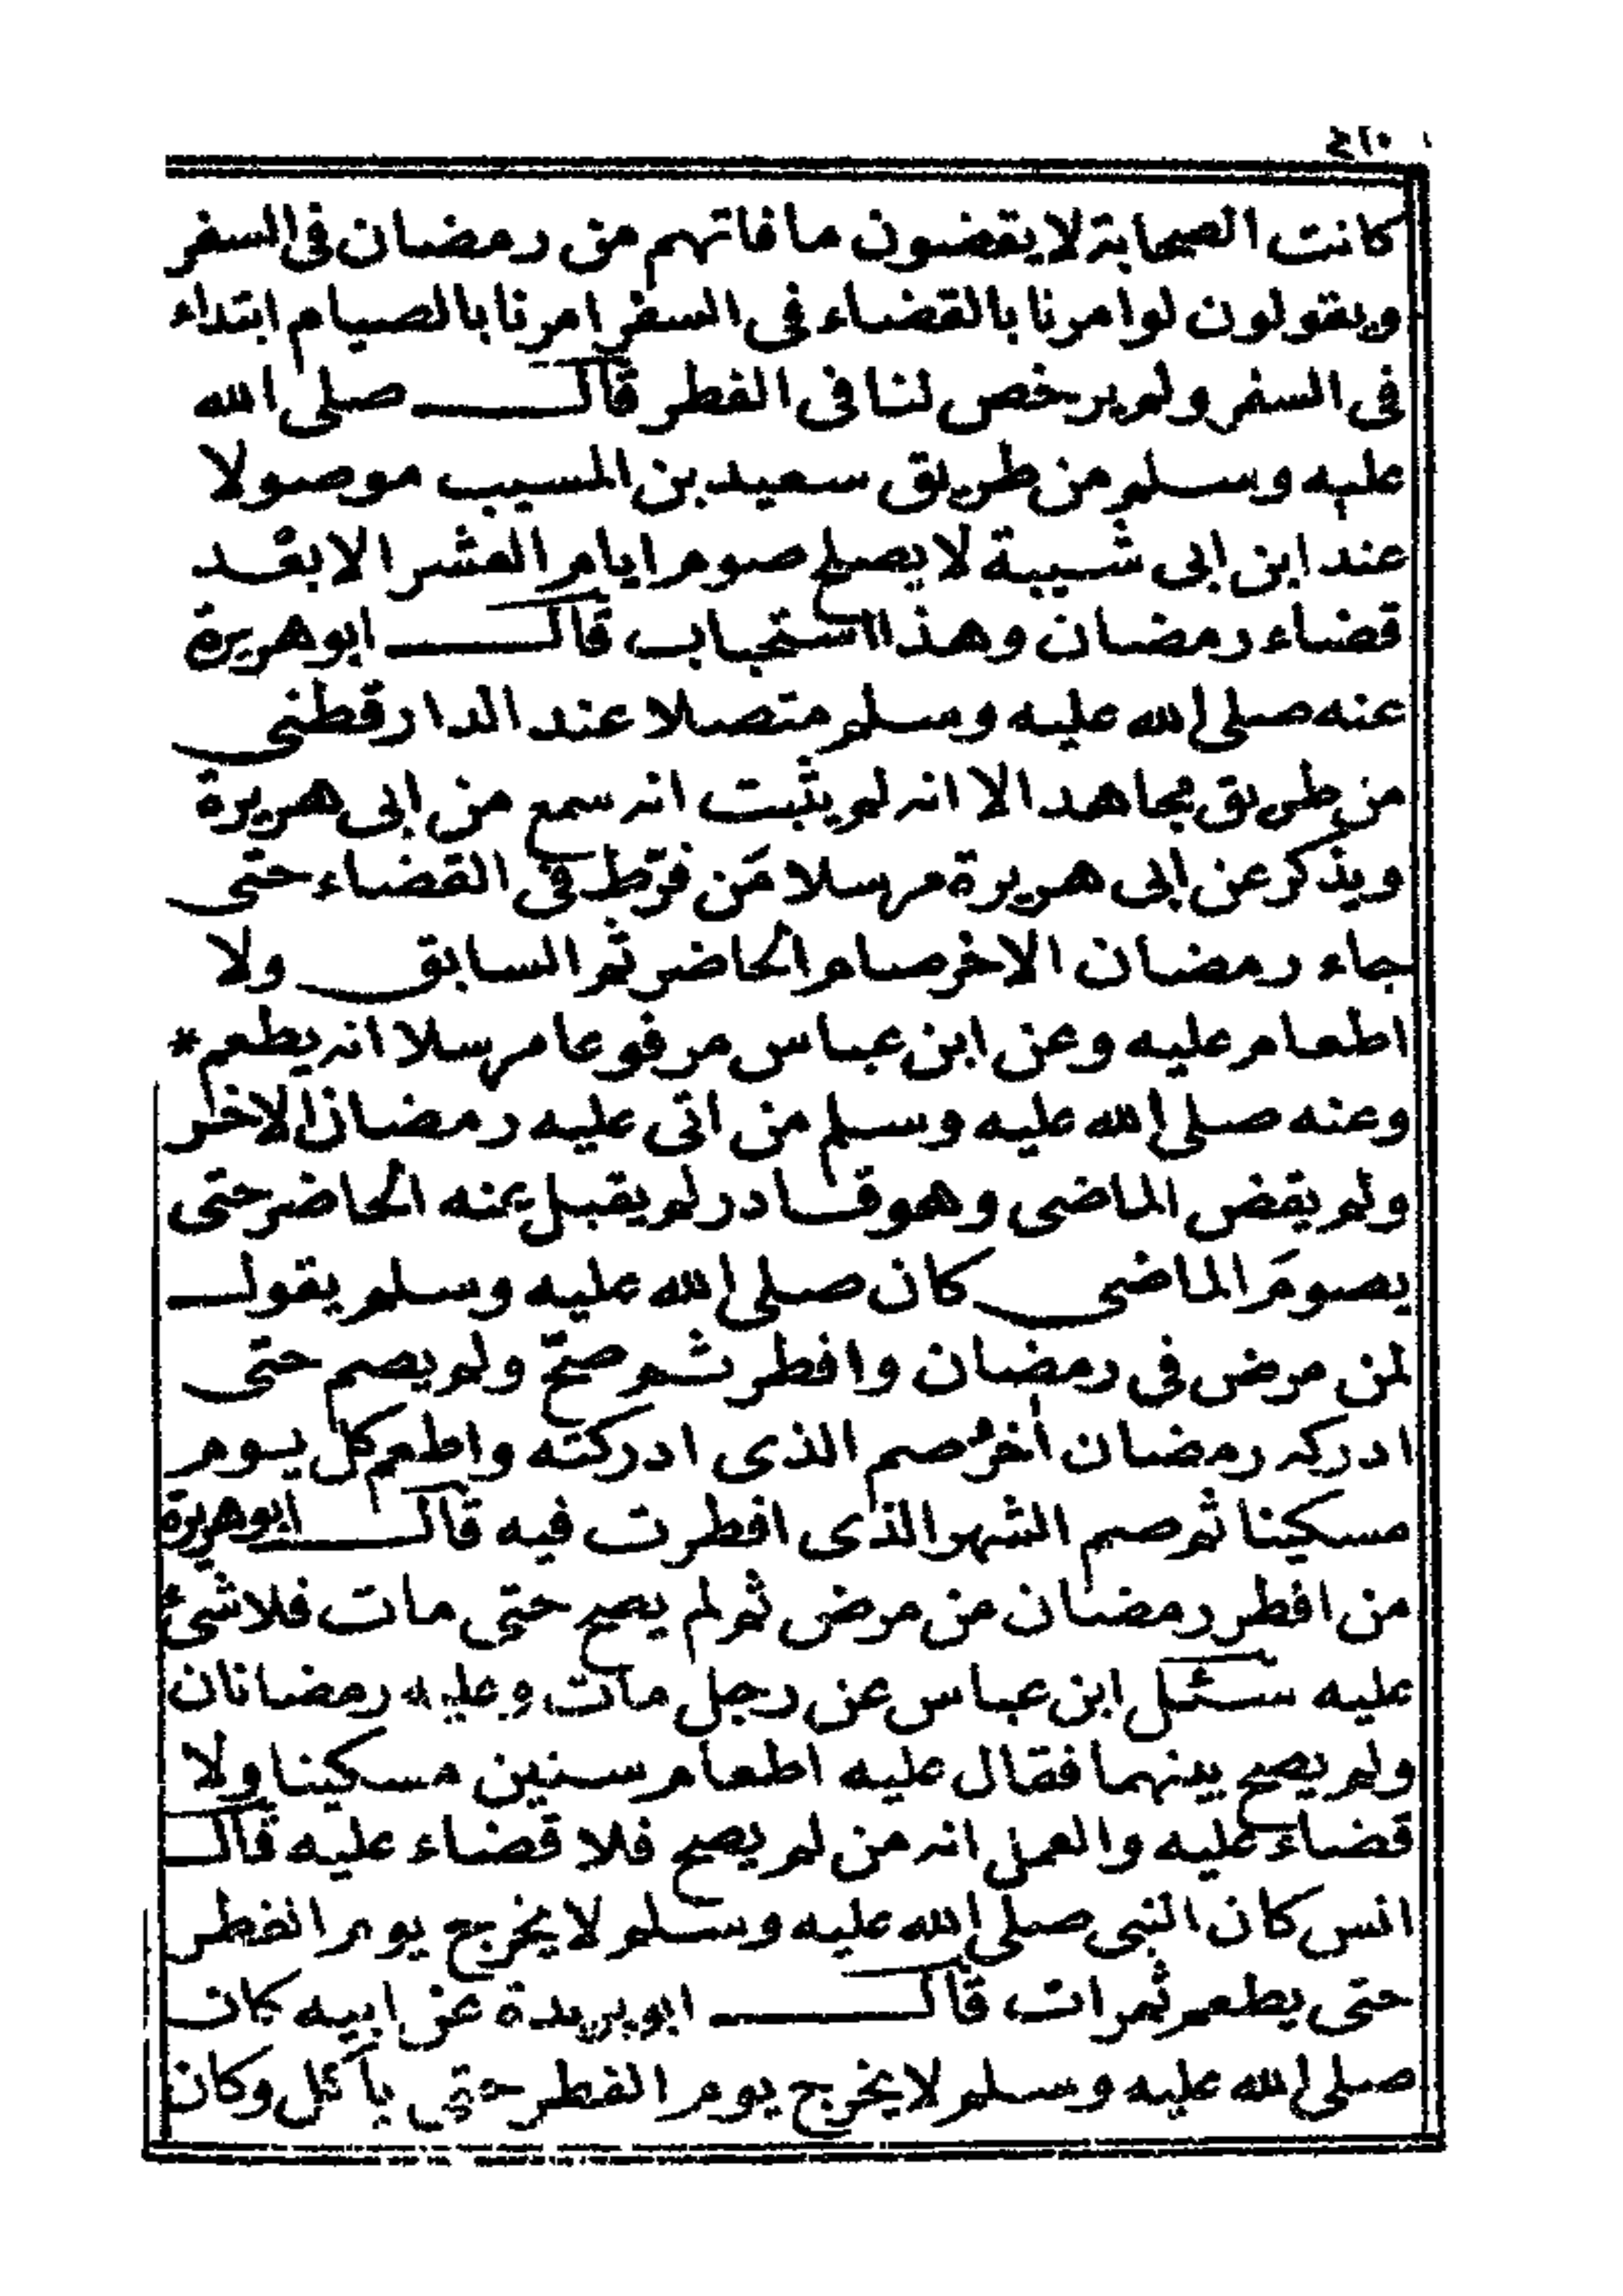 كانت الصحابة لا يقضون ما فاتهم من رمضان فى السفر
ويقولون لو امرنا بالقضاء فى السفر امرنا بالصيام ابتداء
فى السفر ولم يرخص لنا فى الفطر قال صلى الله
عليه وسلم من طريق سعيد بن المسيب موصولا
عند ابن ابى شيبة لا يصلح صوم ايام العشر الا بعد
قضاء رمضان وهذا استحباب قال ابو هريرة
عنه صلى الله عليه وسلم متصلا عند الدارقطنى
من طريق مجاهد الا انه لم يثبت انه سمع من ابى هريرة
ويذكر عن ابى هريرة مرسلا مَن فرّط فى القضاء حتى
جاء رمضان الاخر صام الحاضر ثم السابق ولا
اطعام عليه وعن ابن عباس مرفوعا مرسلا انه يطعم *
وعنه صلى الله عليه وسلم من اتى عليه رمضان الاخر
ولم يقض الماضى وهو قادر لم يقبل عنه الحاضر حتى
يصومَ الماضى كان صلى الله عليه وسلم يقول
لمن مرض فى رمضان وافطر ثم صحّ ولم يصم حتى
ادركه رمضان اخرُ صم الذى ادركته واطعم كل يوم
مسكينا ثم صم الشهر الذى افطرت فيه قال ابو هريرة
من افطر رمضان من مرض ثم لم يصح حتى مات فلا شئ
عليه سئل ابن عباس عن رجل مات وعليه رمضانان
ولم يصح بينهما فقال عليه اطعام ستين مسكينا ولا
قضاء عليه والعمل انه من لم يصح فلا قضاء عليه قال
انس كان النبى صلى الله عليه وسلم لا يخرج يوم الفطر
حتى يطعم ثمرات قال ابو بريدة عن ابيه كان
صلى الله عليه وسلم لا يخرج يوم الفطر حتى يأكل وكان